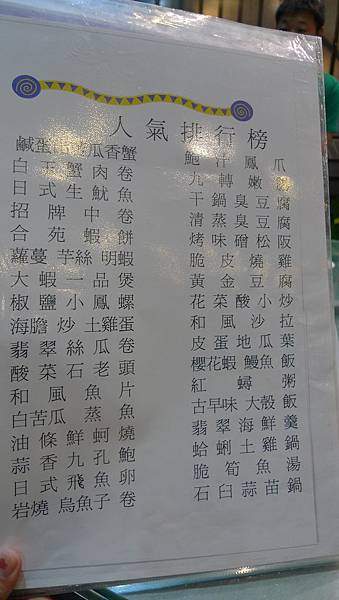 人氣排行榜
鹹蛋瓜香蟹
白玉蟹肉卷
日式生魷魚
招牌中卷
合苑蝦餅
蘿蔓芋絲明蝦
大蝦一品煲
椒鹽小鳳螺
海膽炒土雞蛋
翡翠絲瓜卷
酸菜石老頭
和風魚片
白苦瓜蒸魚
油條鮮蚵燒
蒜香九孔鮑
日式飛魚卵
岩燒烏魚子卷
鮑汁鳳爪
九轉嫩
干鍋臭豆腐
清蒸臭豆腐
烤味磳松阪
脆皮燒雞
黃金豆腐
花菜酸小炒
和風沙拉
皮蛋地瓜葉
櫻花蝦鰻魚飯
紅蟳粥
古早味大殼飯
翡翠海鮮羹
蛤蜊土雞鍋
脆筍魚湯
石臼蒜苗鍋